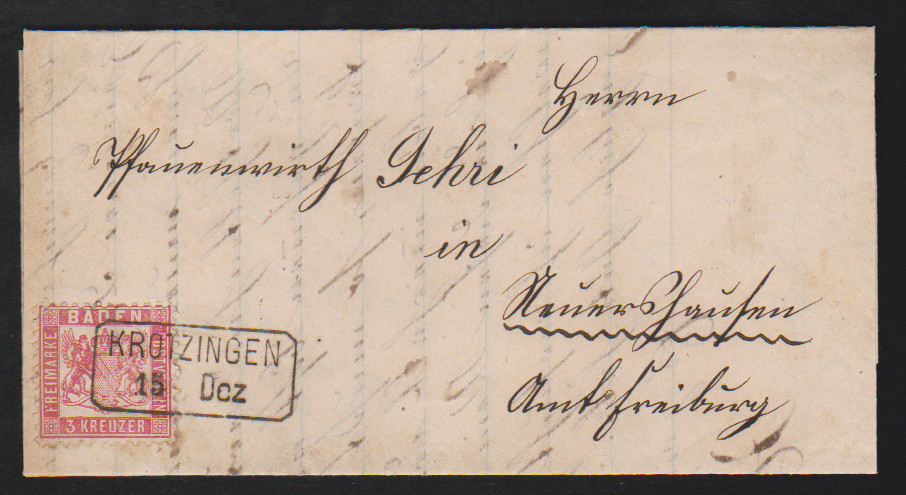 Herrn
Pfauenwirth Gehri
in
Neuershausen
Amt Freiburg
BADEN
FREIMARKE
3 KREUZER
KROTZINGEN
15 Dez